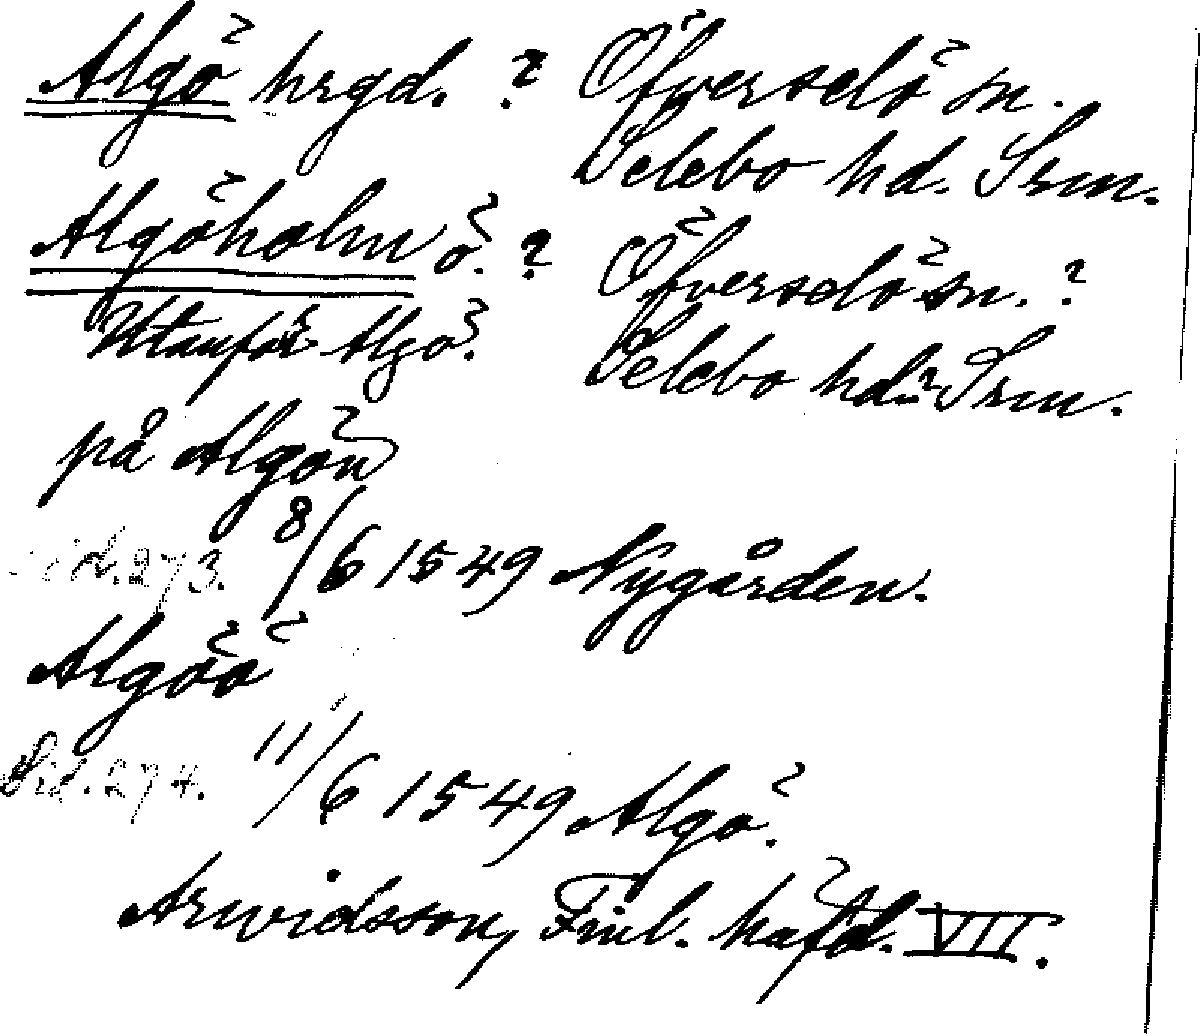 Algö hrgd. ? Öfverselö sn.
Selebo hd. Srm.
Algöholm ö. ? Öfverselö sn. ?
Utanför Algö. Selebo hd. ? Srm.
på Algön
Sid. 273. 8/6 1549 Nygården.
Algöö
Sid. 274. 11/6 1549 Algö.
Arwidsson, Finl. häfd. VII.